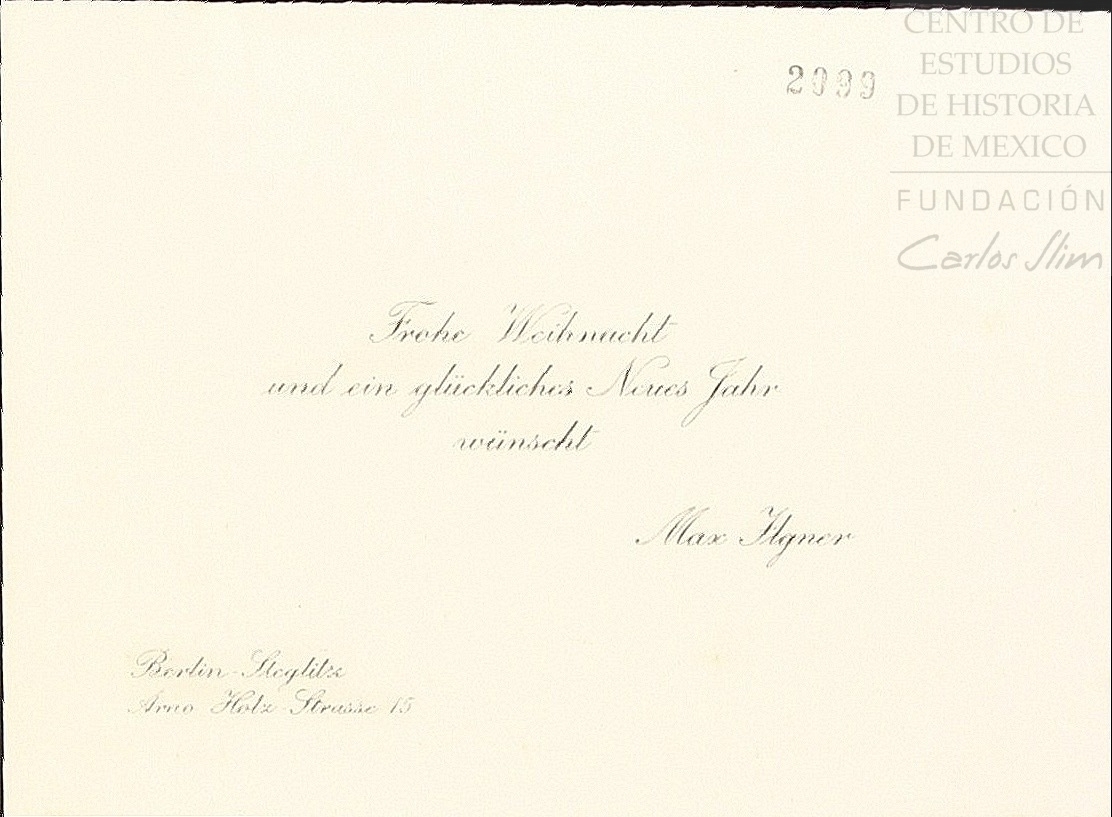 2099
CENTRO DE
ESTUDIOS
DE HISTORIA
DE MEXICO
FUNDACIÓN
Carlos Slim
Frohe Weihnacht
und ein glückliches Neues Jahr
wünscht
Max Ilgner
Berlin-Steglitz
Arno Holz-Strasse 15